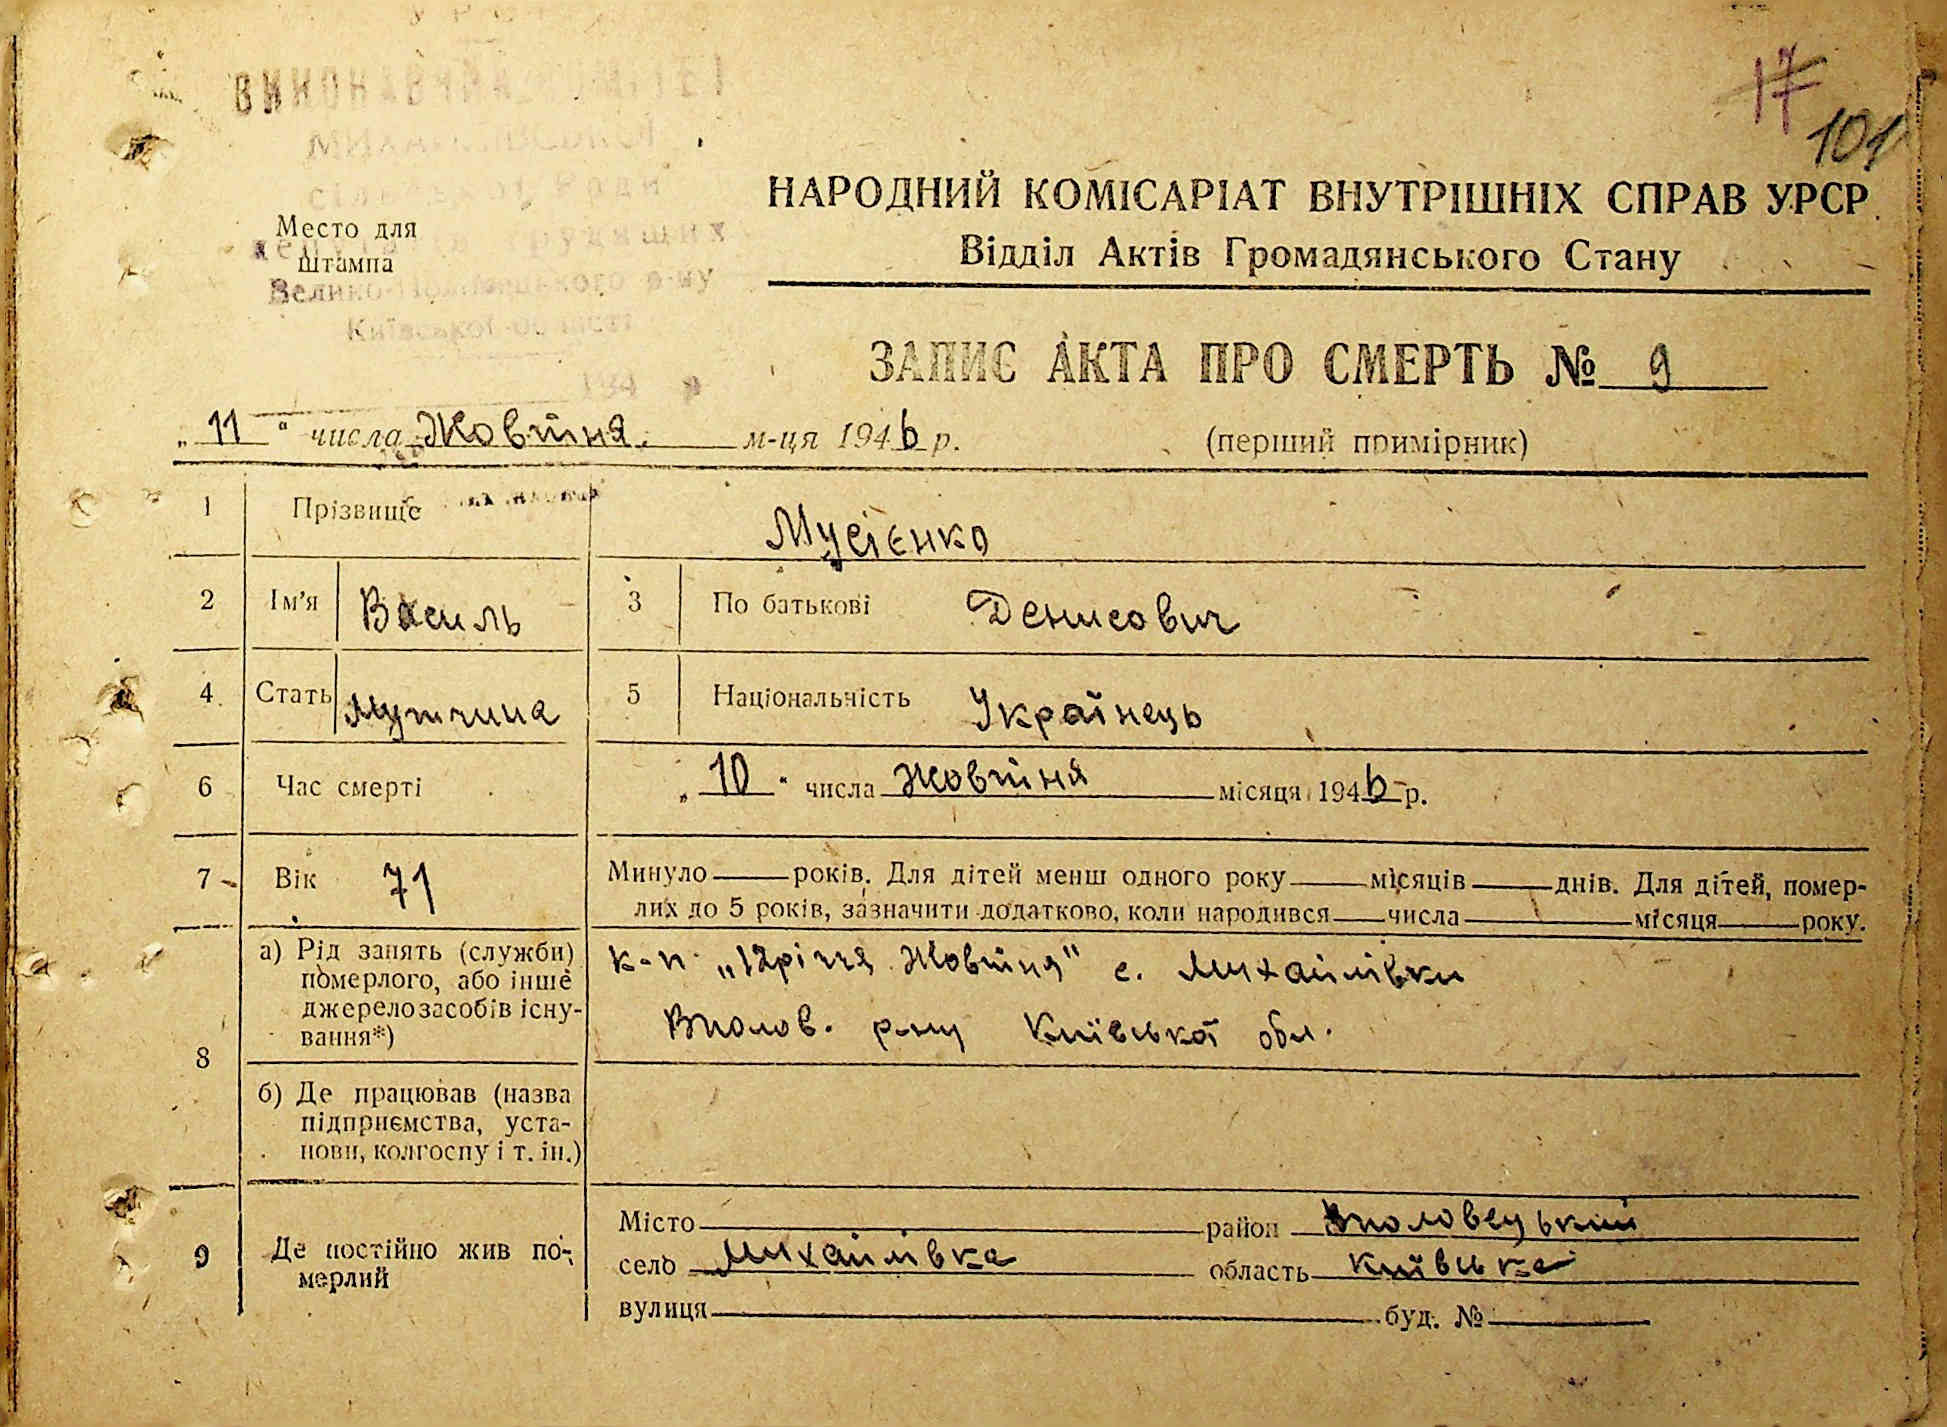 17
101
ВИКОНАВЧИЙ
МИХАЙЛІВСЬКОЇ
сільської Ради
депутатів трудящих
Велико-Половецького р-ну
Київської області
194 р
Место для
штампа
НАРОДНИЙ КОМІСАРІАТ ВНУТРІШНІХ СПРАВ УРСР
Відділ Актів Громадянського Стану
ЗАПИС АКТА ПРО СМЕРТЬ № 9
„11“ числа Жовтня м-ця 1946 р.
(перший примірник)
1 Прізвище Мусієнко
2 Ім'я Василь 3 По батькові Денисович
4 Стать Мущина 5 Національність Українець
6 Час смерті „10“ числа Жовтня місяця 1946 р.
7 Вік 71 Минуло ___ років. Для дітей менш одного року ___ місяців ___ днів. Для дітей, помер-
лих до 5 років, зазначити додатково, коли народився ___ числа ___ місяця ___ року.
8 а) Рід занять (служби)
померлого, або інше
джерело засобів існу-
вання*)
к-п „12річчя Жовтня" с. Михайлівки
Вполов. р-ну Київської обл.
б) Де працював (назва
підприємства, уста-
нови, колгоспу і т. ін.)
9 Де постійно жив по-
мерлий
Місто ___ район Вполовецький
село Михайлівка область Київська
вулиця ___ буд. № ___